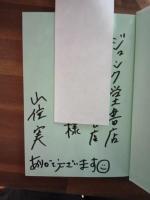 ジュンク堂書店
店
様
山住実
ありがとうございます